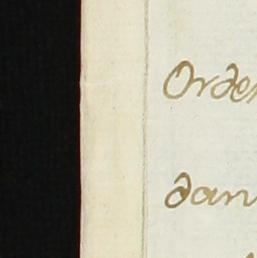 Orden
dan